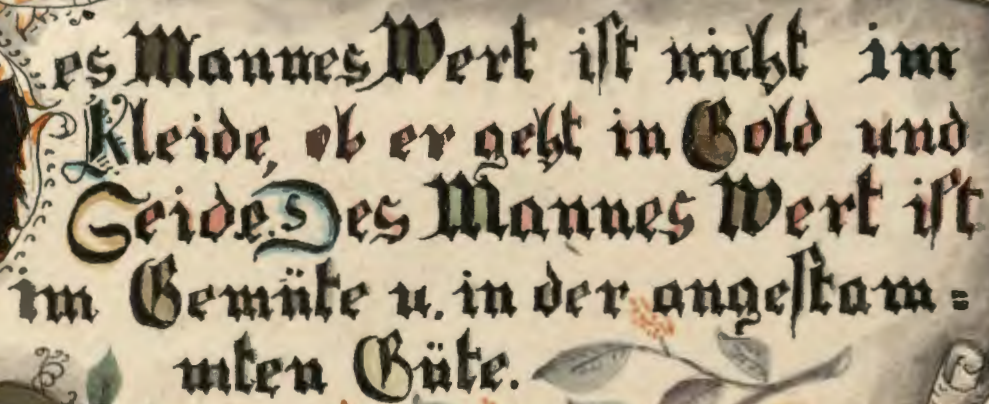 es Mannes Wert ist nicht im
Kleide, ob er geht in Gold und
Seide. Des Mannes Wert ist
im Gemüte u. in der angestam=
mten Güte.